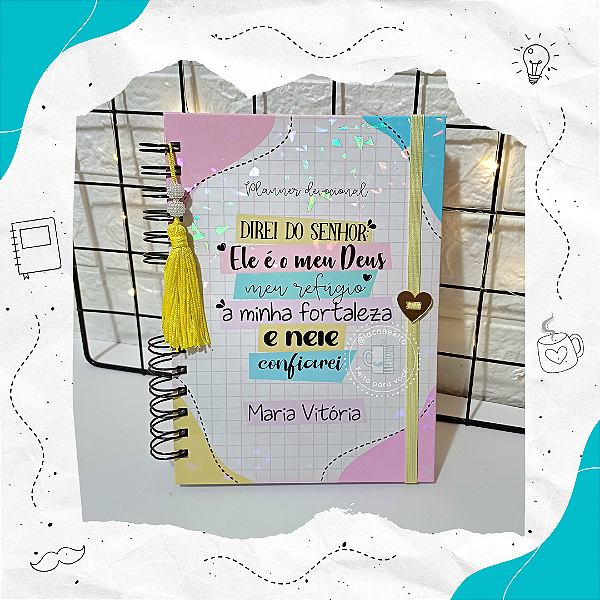 Planner devocional
DIREI DO SENHOR:
Ele é o meu Deus
meu refúgio
a minha fortaleza
e nele
confiarei
@lacanekita
Feito para você!
Maria Vitória